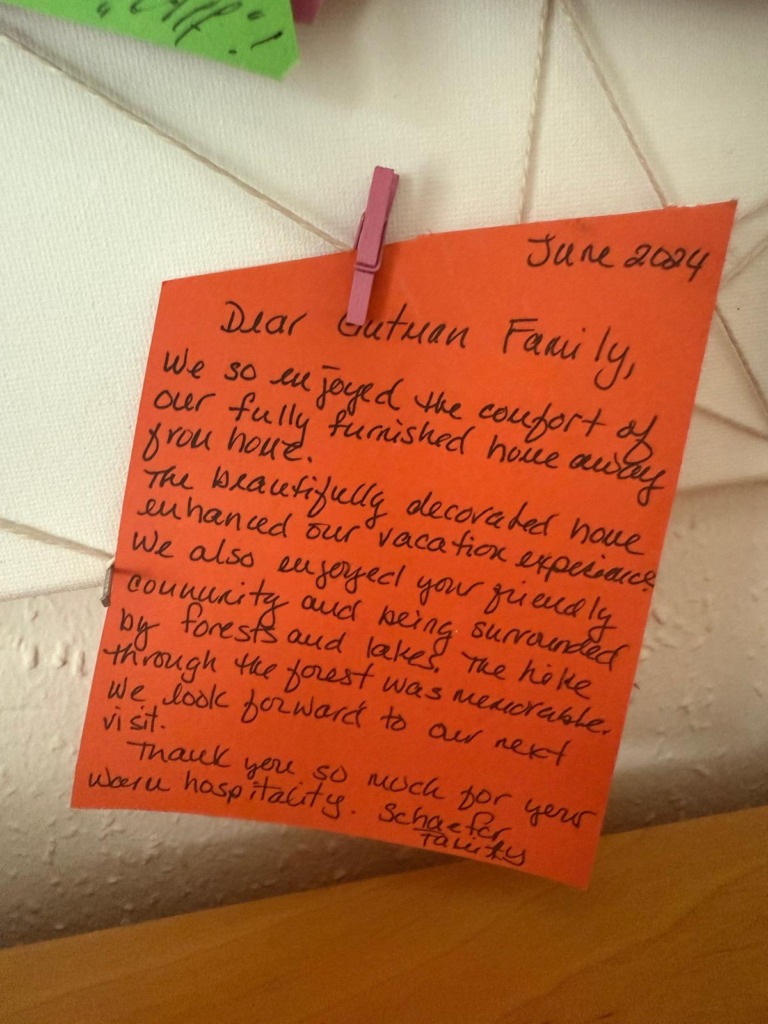 June 2024
Dear Gutman Family,
We so enjoyed the comfort of
our fully furnished home away
from home.
The beautifully decorated home
enhanced our vacation experience
We also enjoyed your friendly
community and being surrounded
by forests and lakes. The hike
through the forest was memorable.
We look forward to our next
visit.
Thank you so much for your
warm hospitality. Schaefer
Family